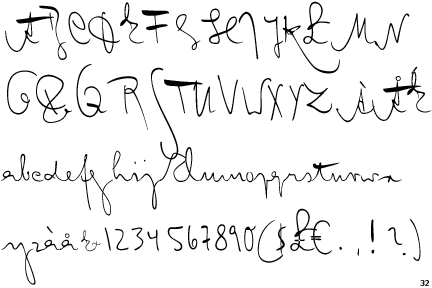 ABCDEFGHIJKLMN
OPQRSTUVWXYZÀÅÉ
abcdefghijklmnopqrstuvwx
yzàåé&1234567890($£€.,!?)
32